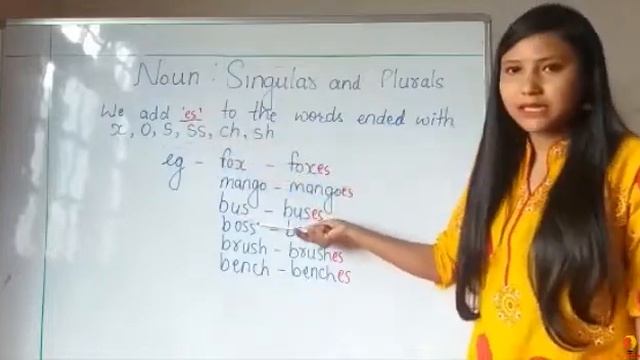 Noun : Singular and Plurals
We add 'es' to the words ended with
x, o, s, ss, ch, sh
eg - fox - foxes
mango - mangoes
bus - buses
boss -
brush - brushes
bench - benches